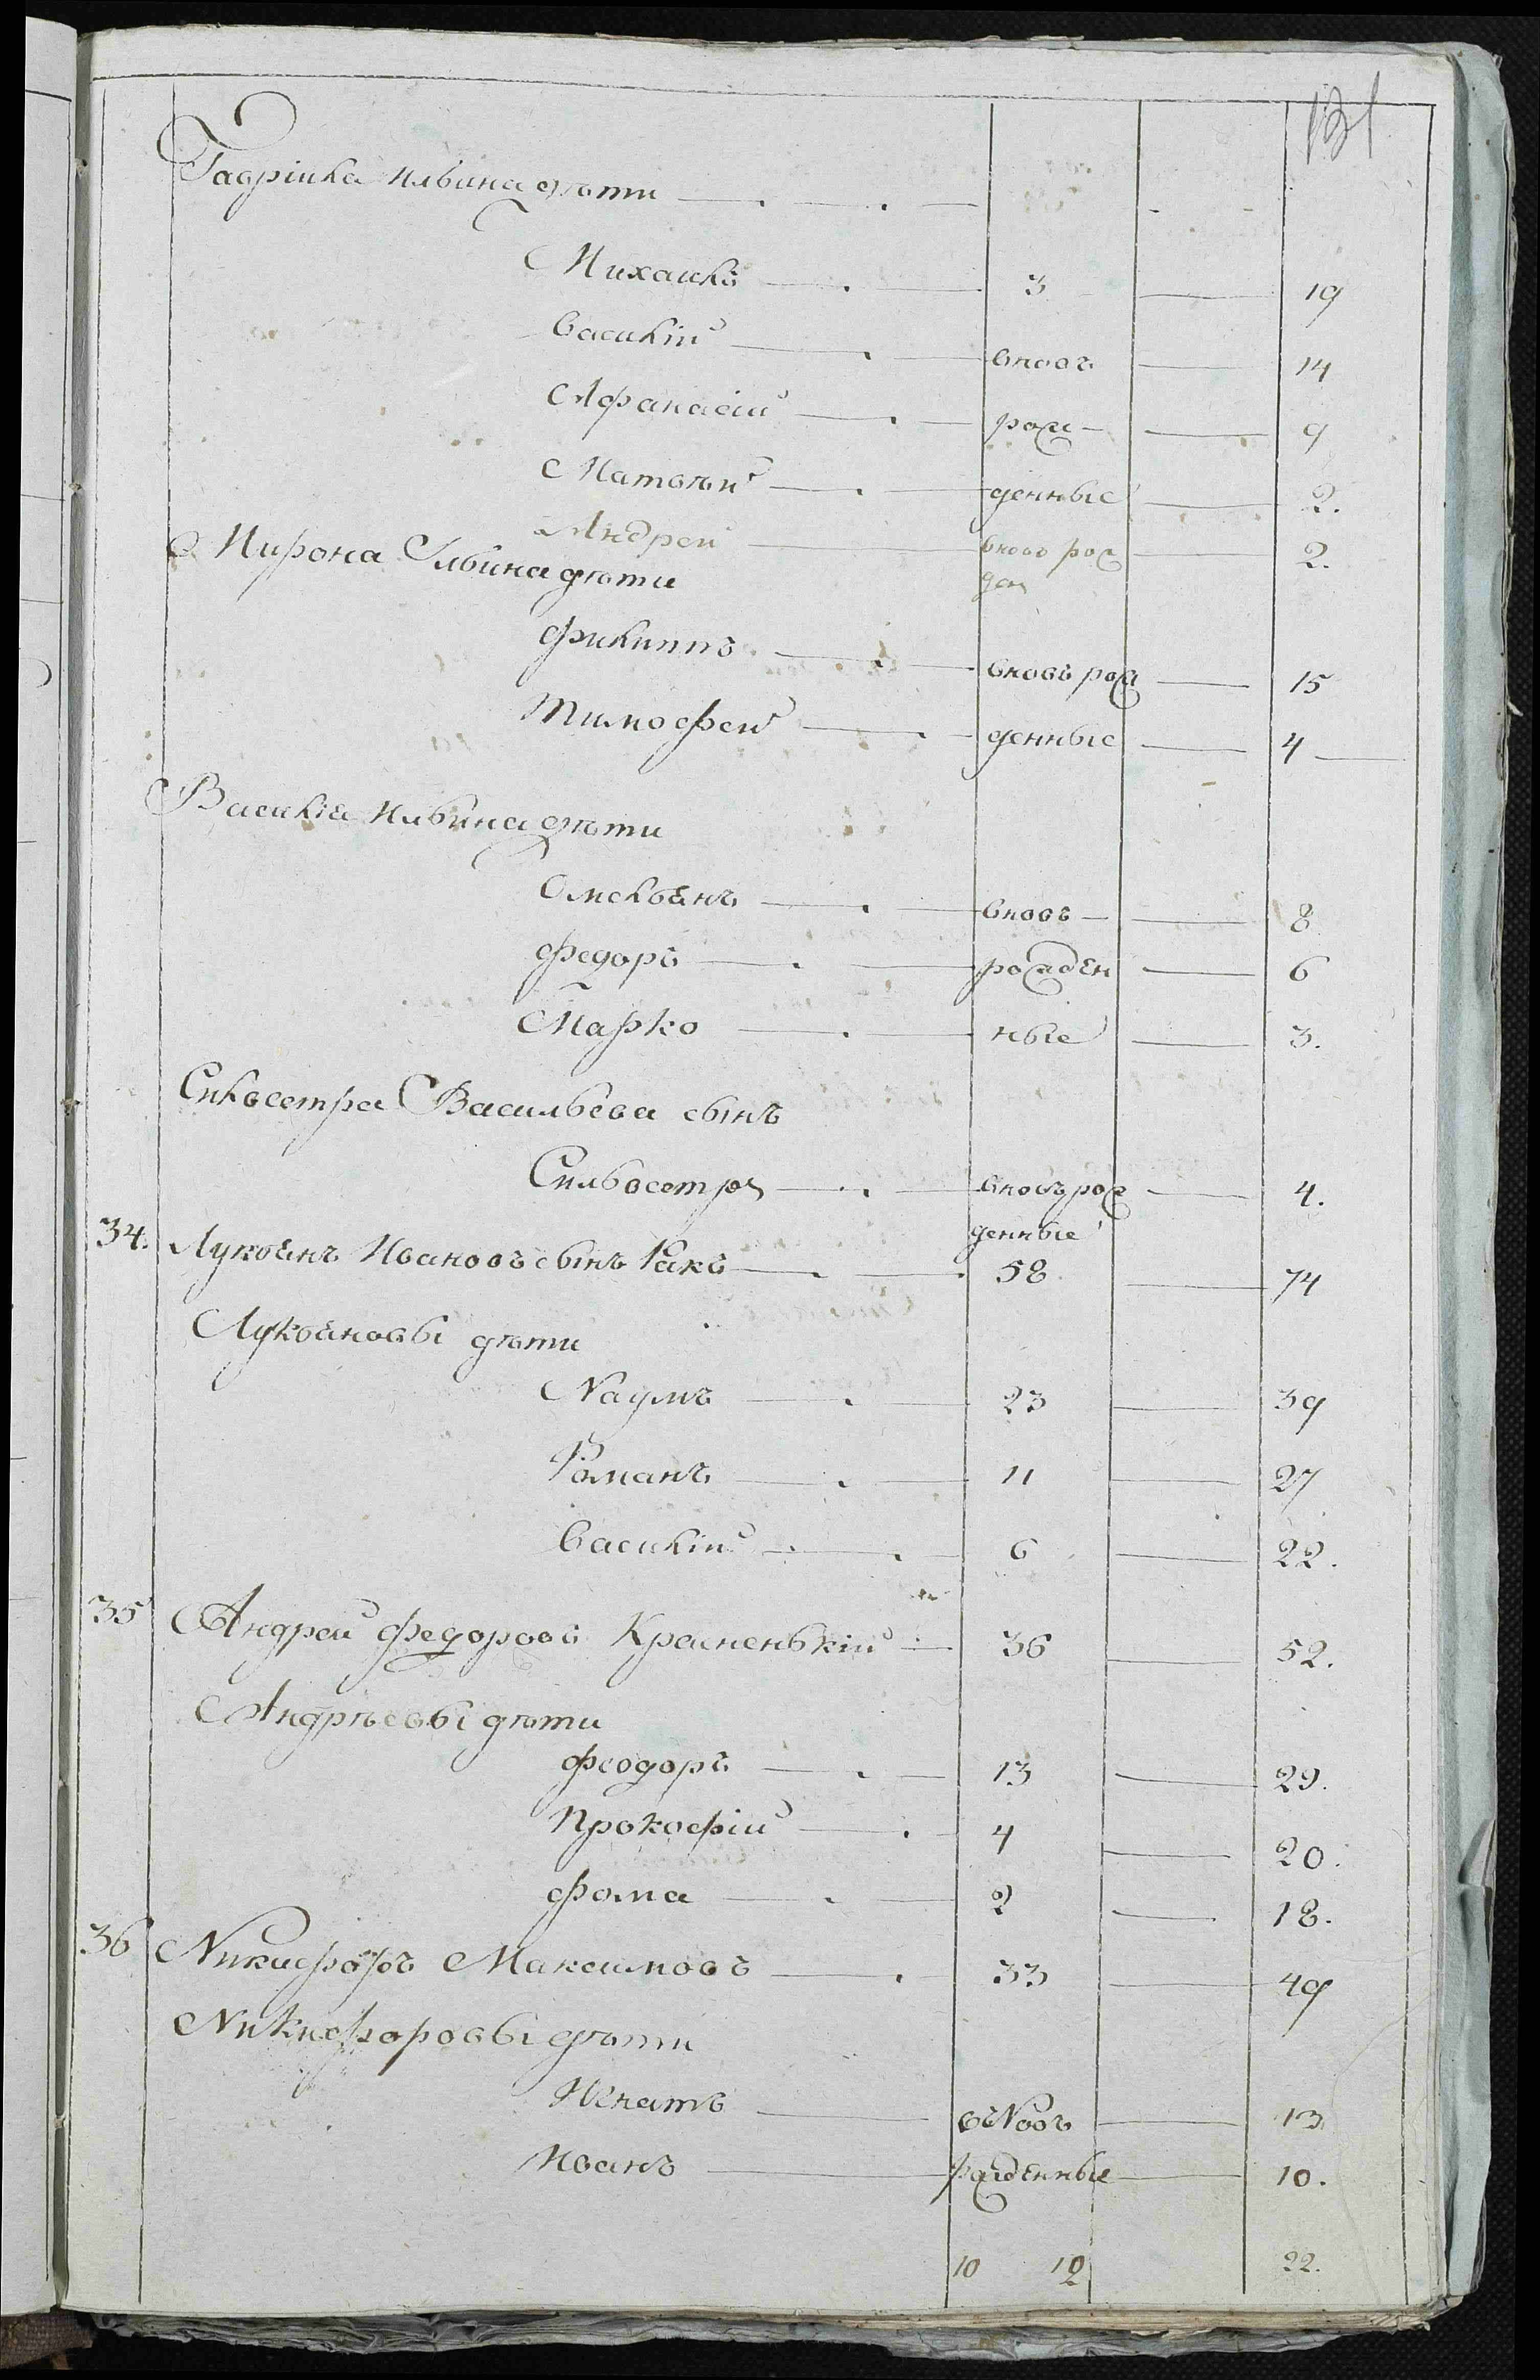 131
Гаврiила Ильина дѣти
Михаилъ 3 19
Василiй вновь 14
Афанасiй рож- 9
Матвѣй денные 2.
Андрей вновь рож 2.
ден
Мирона Ильина дѣти
Филиппъ вновь рож 15
Тимофей денные 4
Василiя Ильина дѣти
Омельянъ вновь 8
Федоръ рожден 6
Марко ные 3.
Сильвестра Васильева сынъ
Сильвестръ вновь рож 4.
денные
34. Лукьянъ Ивановъ сынъ Ракъ 58 74
Лукьяновы дѣти
Наумъ 23 39
Романъ 11 27
Василiй 6 22.
35 Андрей Федоровъ Красненькiй 36 52.
Андрѣевы дѣти
Феодоръ 13 29.
Прокофiй 4 20.
Фома 2 18.
36 Никифоръ Максимовъ 33 49
Никифоровы дѣти
Игнатъ вновь 13
Иванъ рожденные 10.
10 12 22.